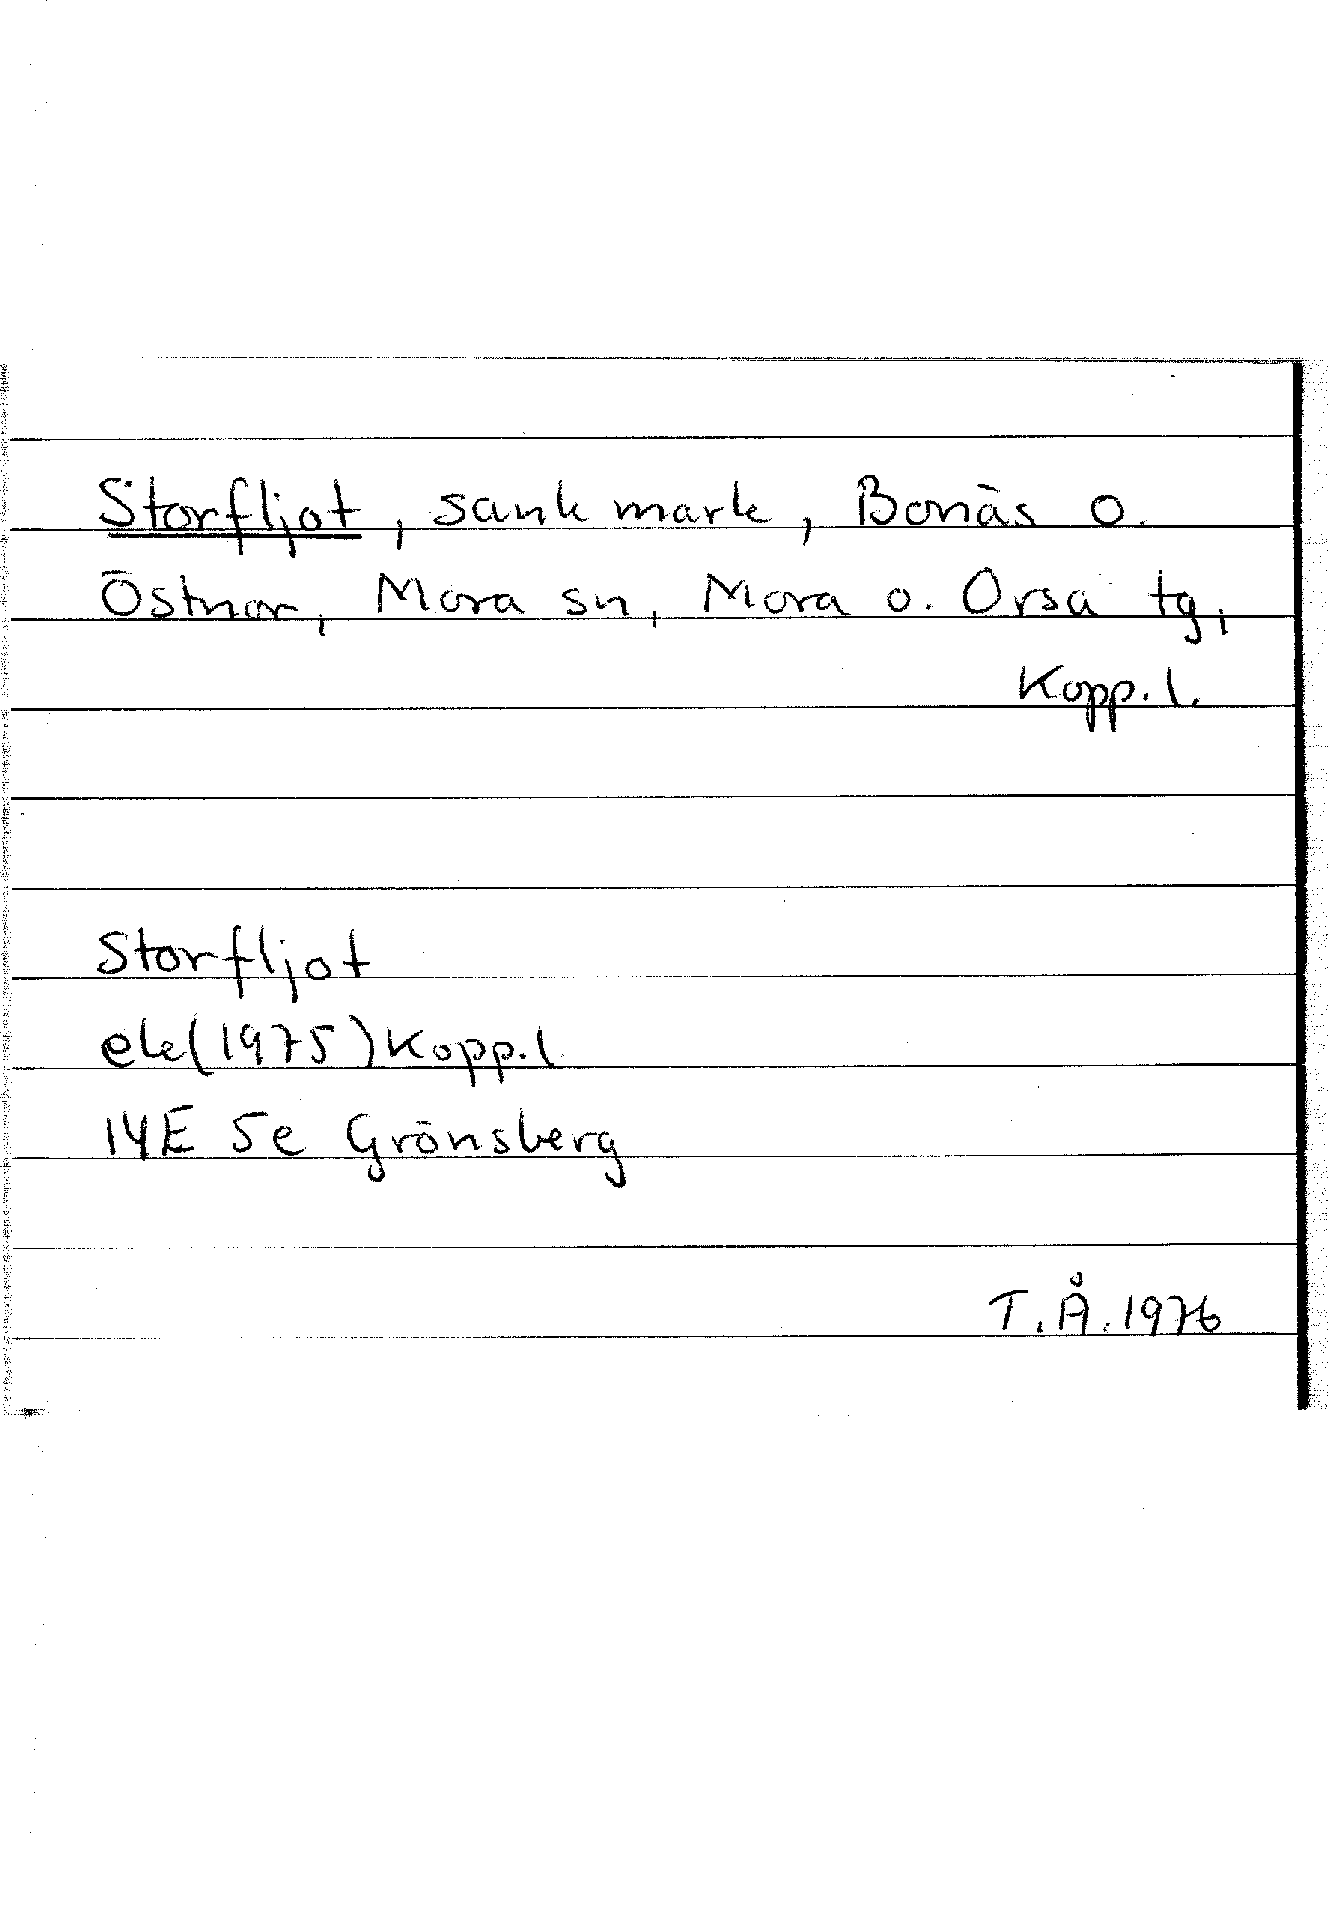 Storfljot, sank mark, Bonäs o.
Östnor, Mora sn, Mora o. Orsa tg,
Kopp. l.
Storfljot
ek(1975)Kopp.l
14E 5e Grönsberg
T.Å.1976